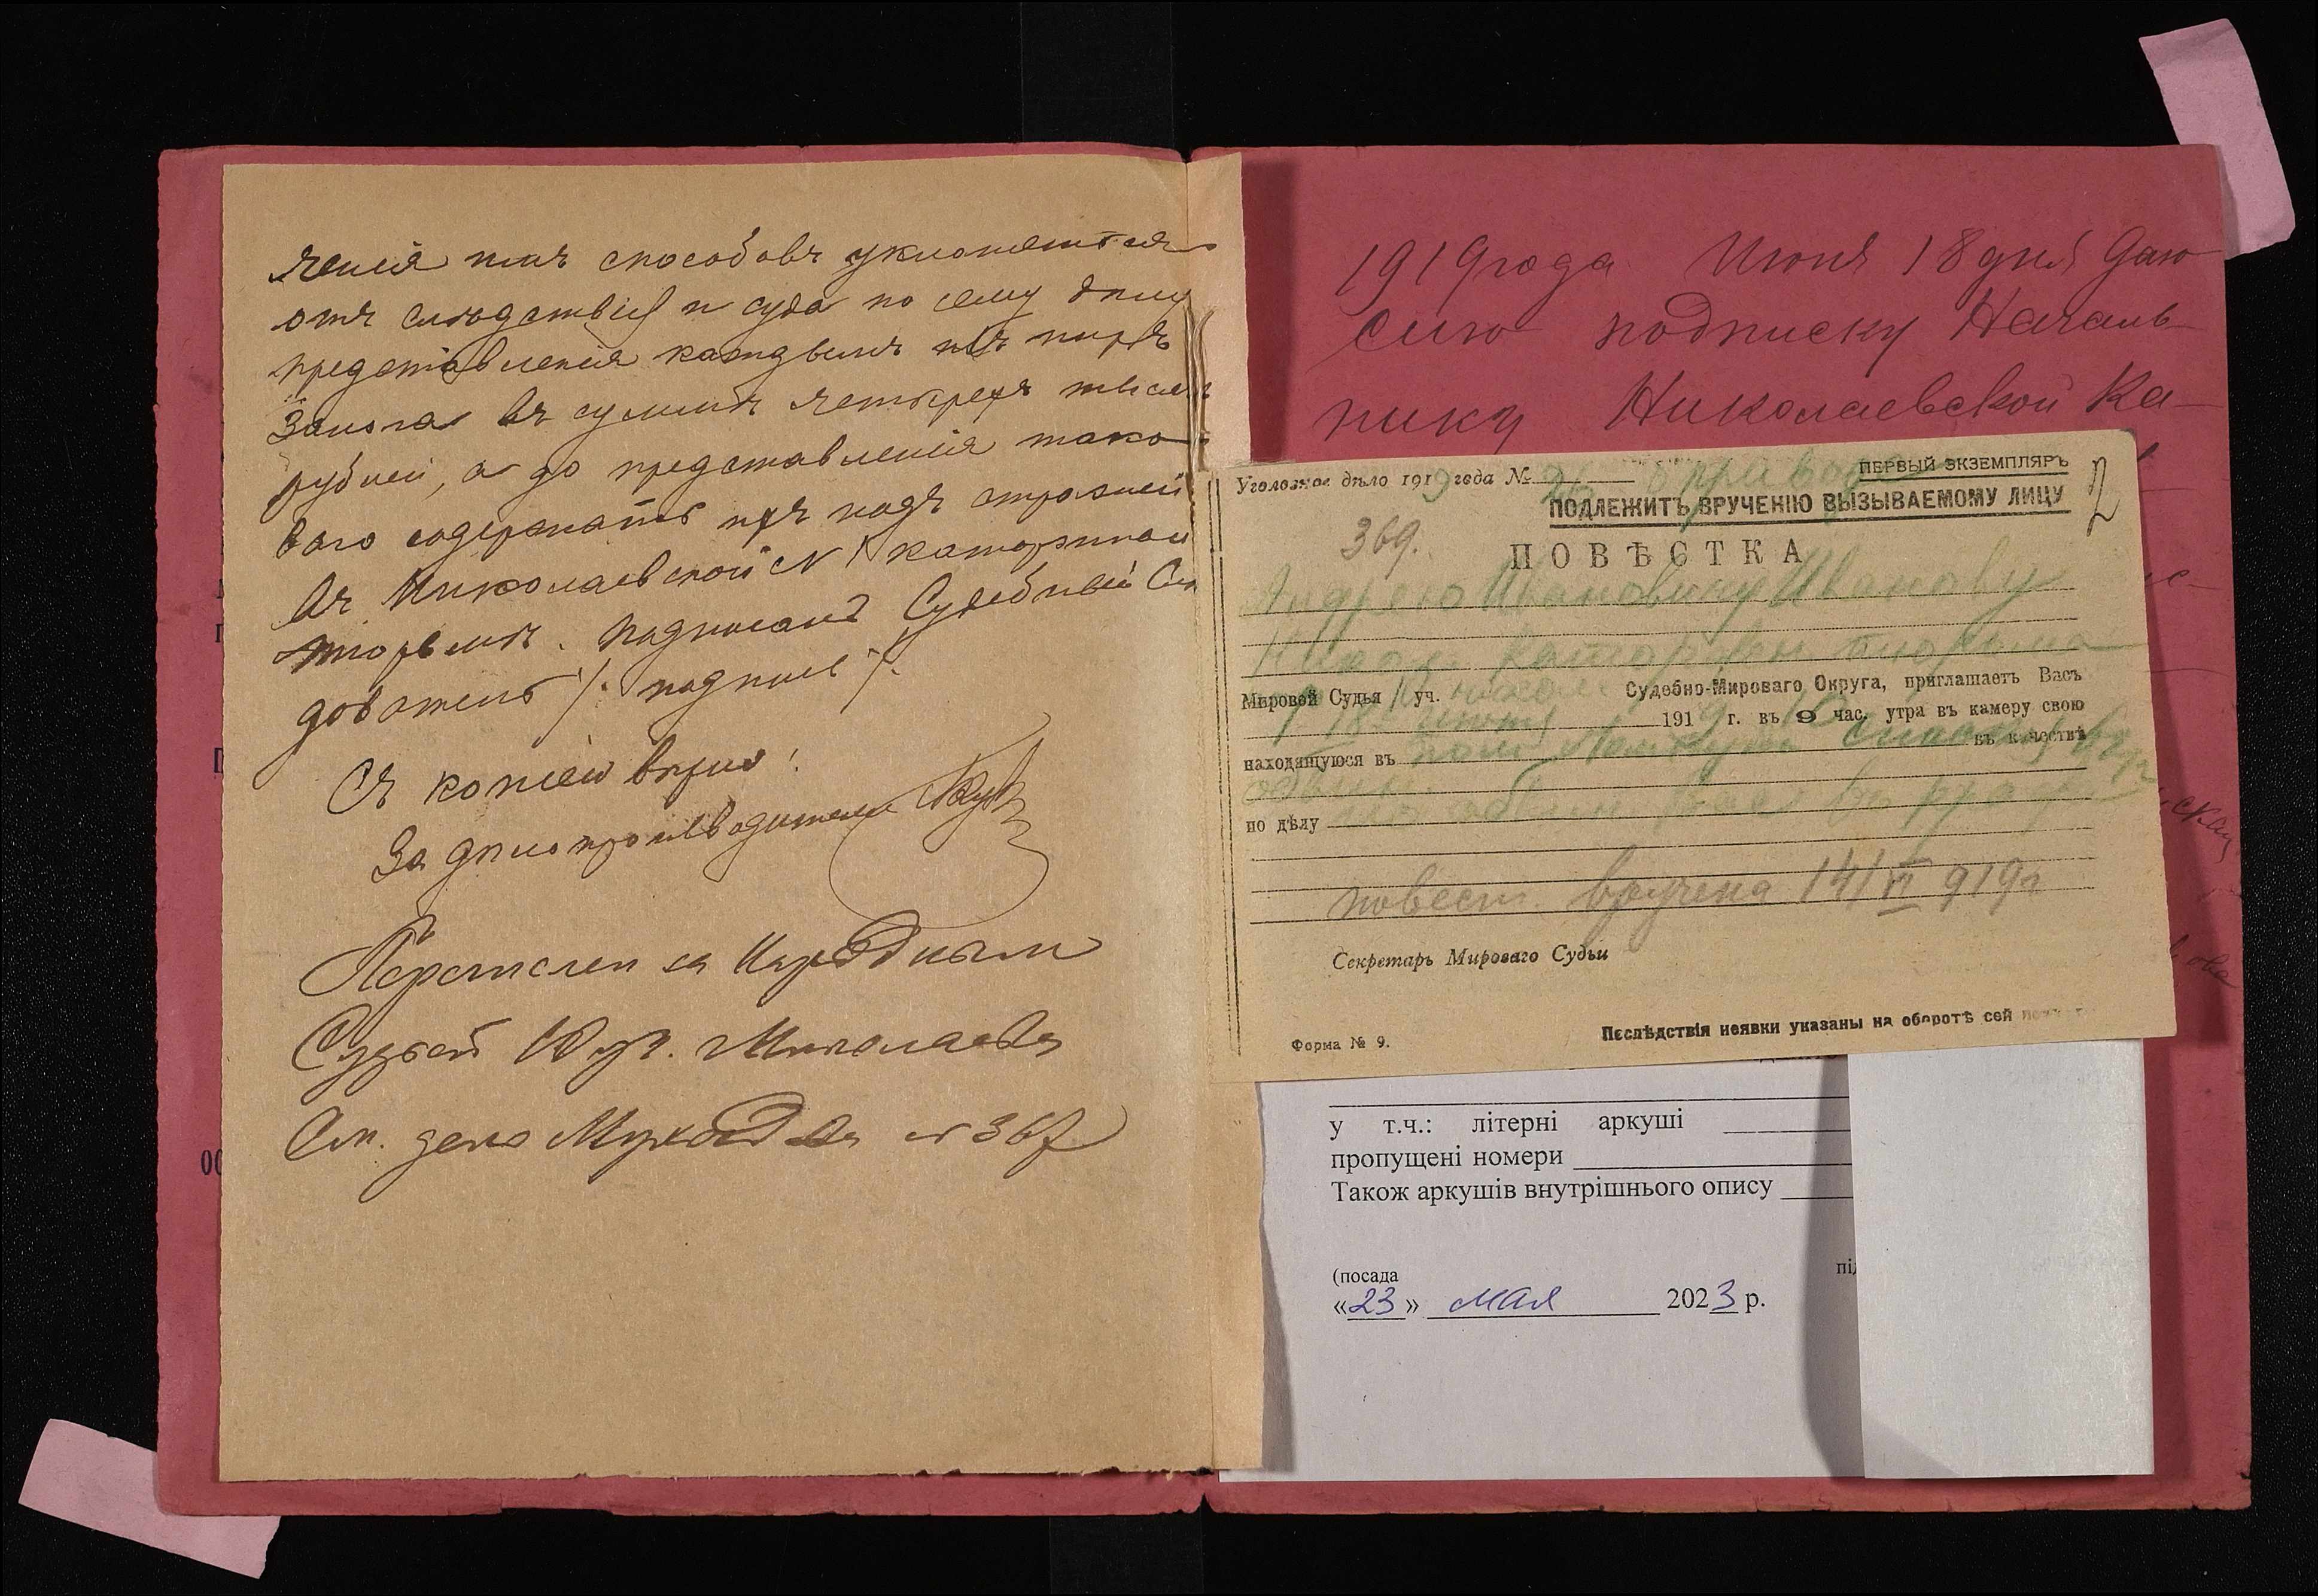 ченія имъ способовъ уклоняться
отъ слѣдствія и суда по сему дѣлу
представленія каждымъ изъ нихъ
залога въ суммѣ четырехъ тысячъ
рублей, а до представленія тако-
ваго содержать ихъ подъ стражей
въ Николаевской № 1 каторжной
тюрьмѣ. Подписалъ Судебный Слѣ
дователь /: подпись :/.
Съ копіей вѣрно:
За дѣлопроизводителя
Перечислен за Народным
Судьей 10 уч. Николаева
См. дело № 367
1919 года Июня 18 дня даю
сию подписку Началь-
нику Николаевской Ка-
Уголовное дѣло 1919 года №
ПЕРВЫЙ ЭКЗЕМПЛЯРЪ
ПОДЛЕЖИТЪ ВРУЧЕНІЮ ВЫЗЫВАЕМОМУ ЛИЦУ
2
369.
ПОВѢСТКА
Андрею Ивановичу Иванову
Никол. Каторжн. тюрьма
Мировой Судья уч. Судебно-Мироваго Округа, приглашаетъ Васъ
18 июня 1919 г. въ 9 час. утра въ камеру свою
находящуюся въ въ качествѣ
по дѣлу
повест. вручена 14/VI 919 г
Секретарь Мироваго Судьи
Послѣдствія неявки указаны на оборотѣ сей
Форма № 9.
у т.ч.: літерні аркуші
пропущені номери
Також аркушів внутрішнього опису
(посада під
«23» мая 2023 р.